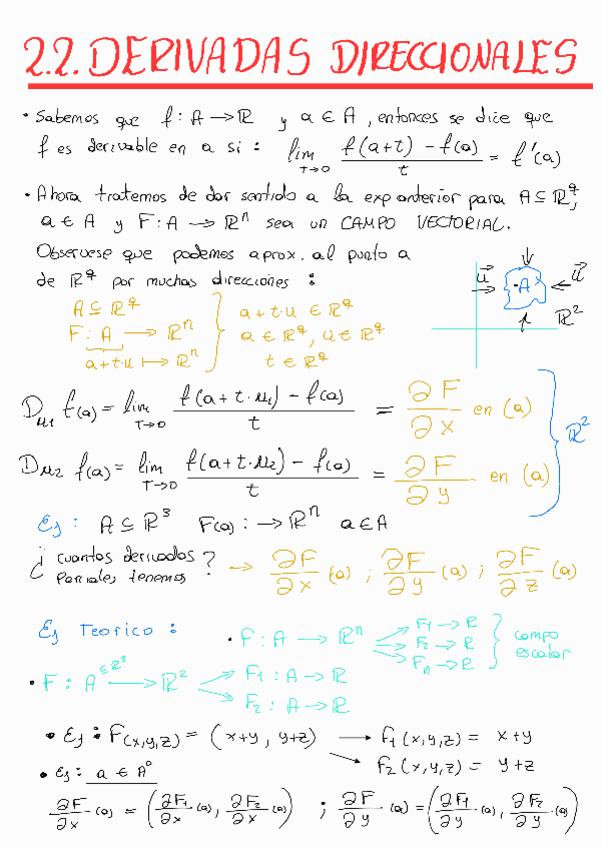 2.2. DERIVADAS DIRECCIONALES
• Sabemos que f: A → R y a ∈ A, entonces se dice que
f es derivable en a si: lim T→0 f(a+t) - f(a) / t = f'(a)
• Ahora tratemos de dar sentido a la exp anterior para A ⊆ R^q,
a ∈ A y F: A → R^n sea un CAMPO VECTORIAL.
Observese que podemos aprox. al punto a
de R^q por muchas direcciones:
u⃗ • A u⃗ R²
A ⊆ R^q
F: A → R^n
a+t·u ↦ R^n
a+t·u ∈ R^q
a ∈ R^q, u ∈ R^q
t ∈ R^q
D_u1 f(a) = lim T→0 f(a+t·u1) - f(a) / t = ∂F/∂x en (a)
D_u2 f(a) = lim T→0 f(a+t·u2) - f(a) / t = ∂F/∂y en (a)
R²
Ej: A ⊆ R³ F(a): → R^n a ∈ A
¿ cuantas derivadas
parciales tenemos ? → ∂F/∂x (a) ; ∂F/∂y (a) ; ∂F/∂z (a)
Ej Teorico:
• F: A → R^n
F1 → R
F2 → R
Fn → R
campo
escalar
• F: A ⊆R³ → R²
F1: A → R
F2: A → R
• Ej: F(x,y,z) = (x+y, y+z) → f1(x,y,z) = x+y
f2(x,y,z) = y+z
• Ej: a ∈ A°
∂F/∂x (a) = (∂F1/∂x (a), ∂F2/∂x (a)) ; ∂F/∂y (a) = (∂F1/∂y (a), ∂F2/∂y (a))